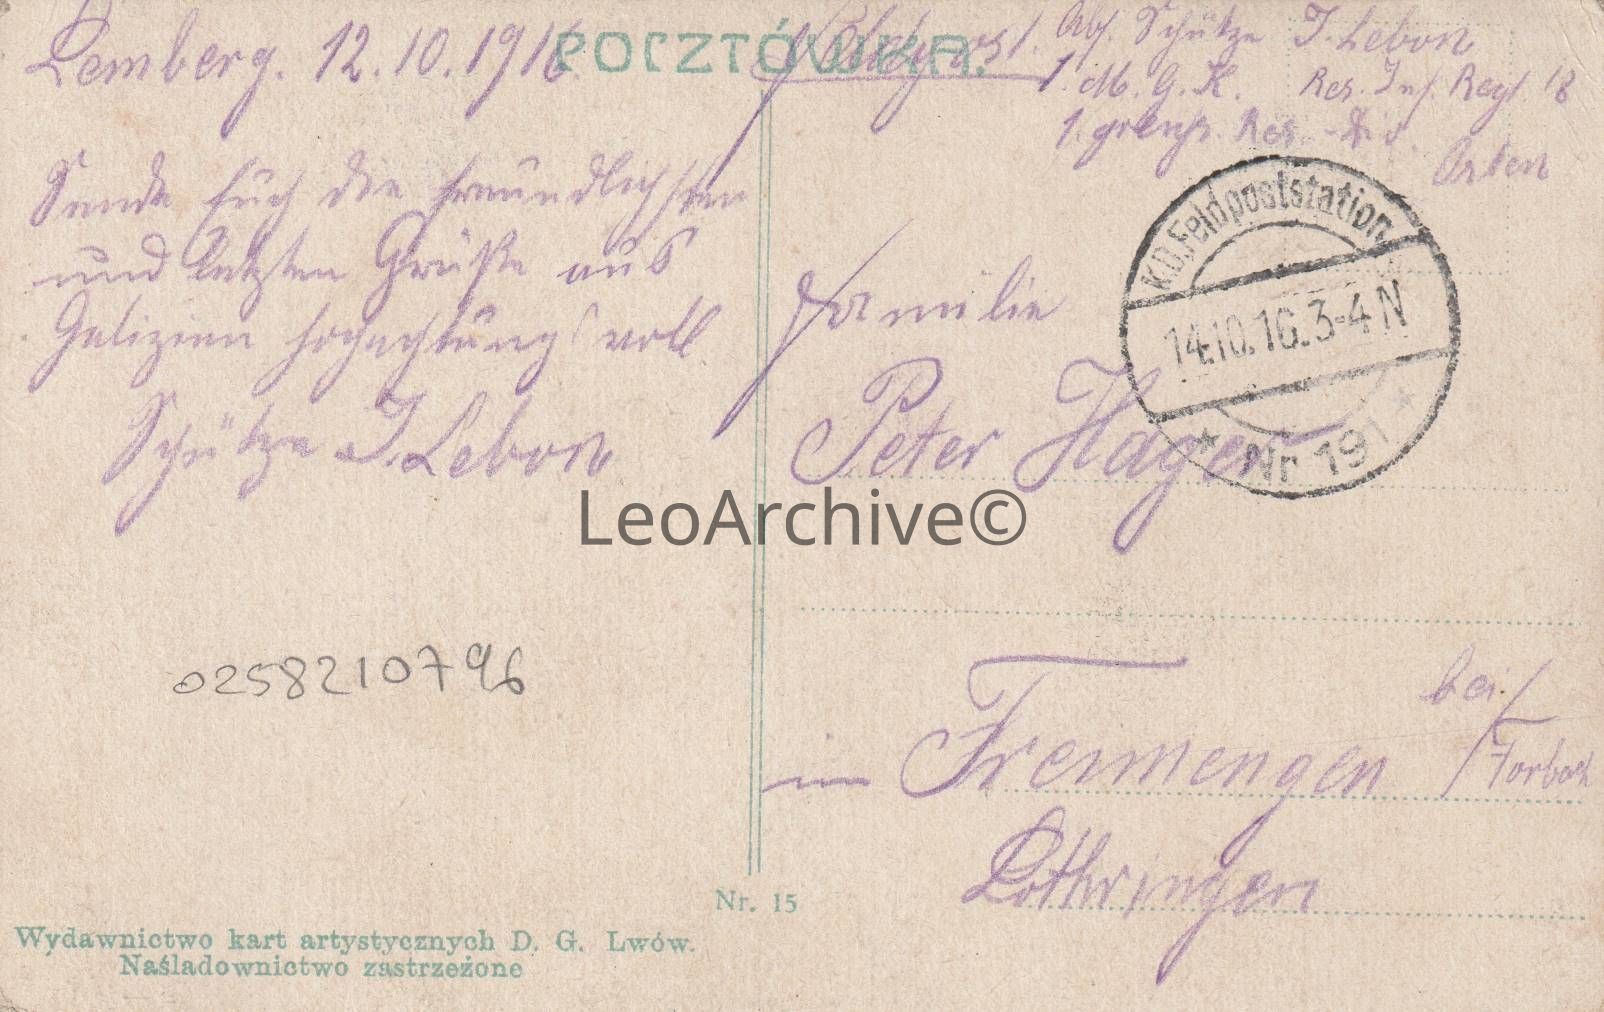 Lemberg. 12.10.1916
POCZTÓWKA.
Feldpost. Abs. Schütze J. Lebon
1. M. G. K. Res. Inf. Regt. 18
1. Res. Div.
Osten
Sende Euch die freundlichsten
und letzten Grüße aus
Galizien hochachtungsvoll
Schütze J. Lebon
K.D. Feldpoststation
14.10.16. 3-4 N
* Nr 191 *
Familie
Peter Hager
LeoArchive©
0258210796
bei
in Fremengen / Forbach
Lothringen
Nr. 15
Wydawnictwo kart artystycznych D. G. Lwów.
Naśladownictwo zastrzeżone